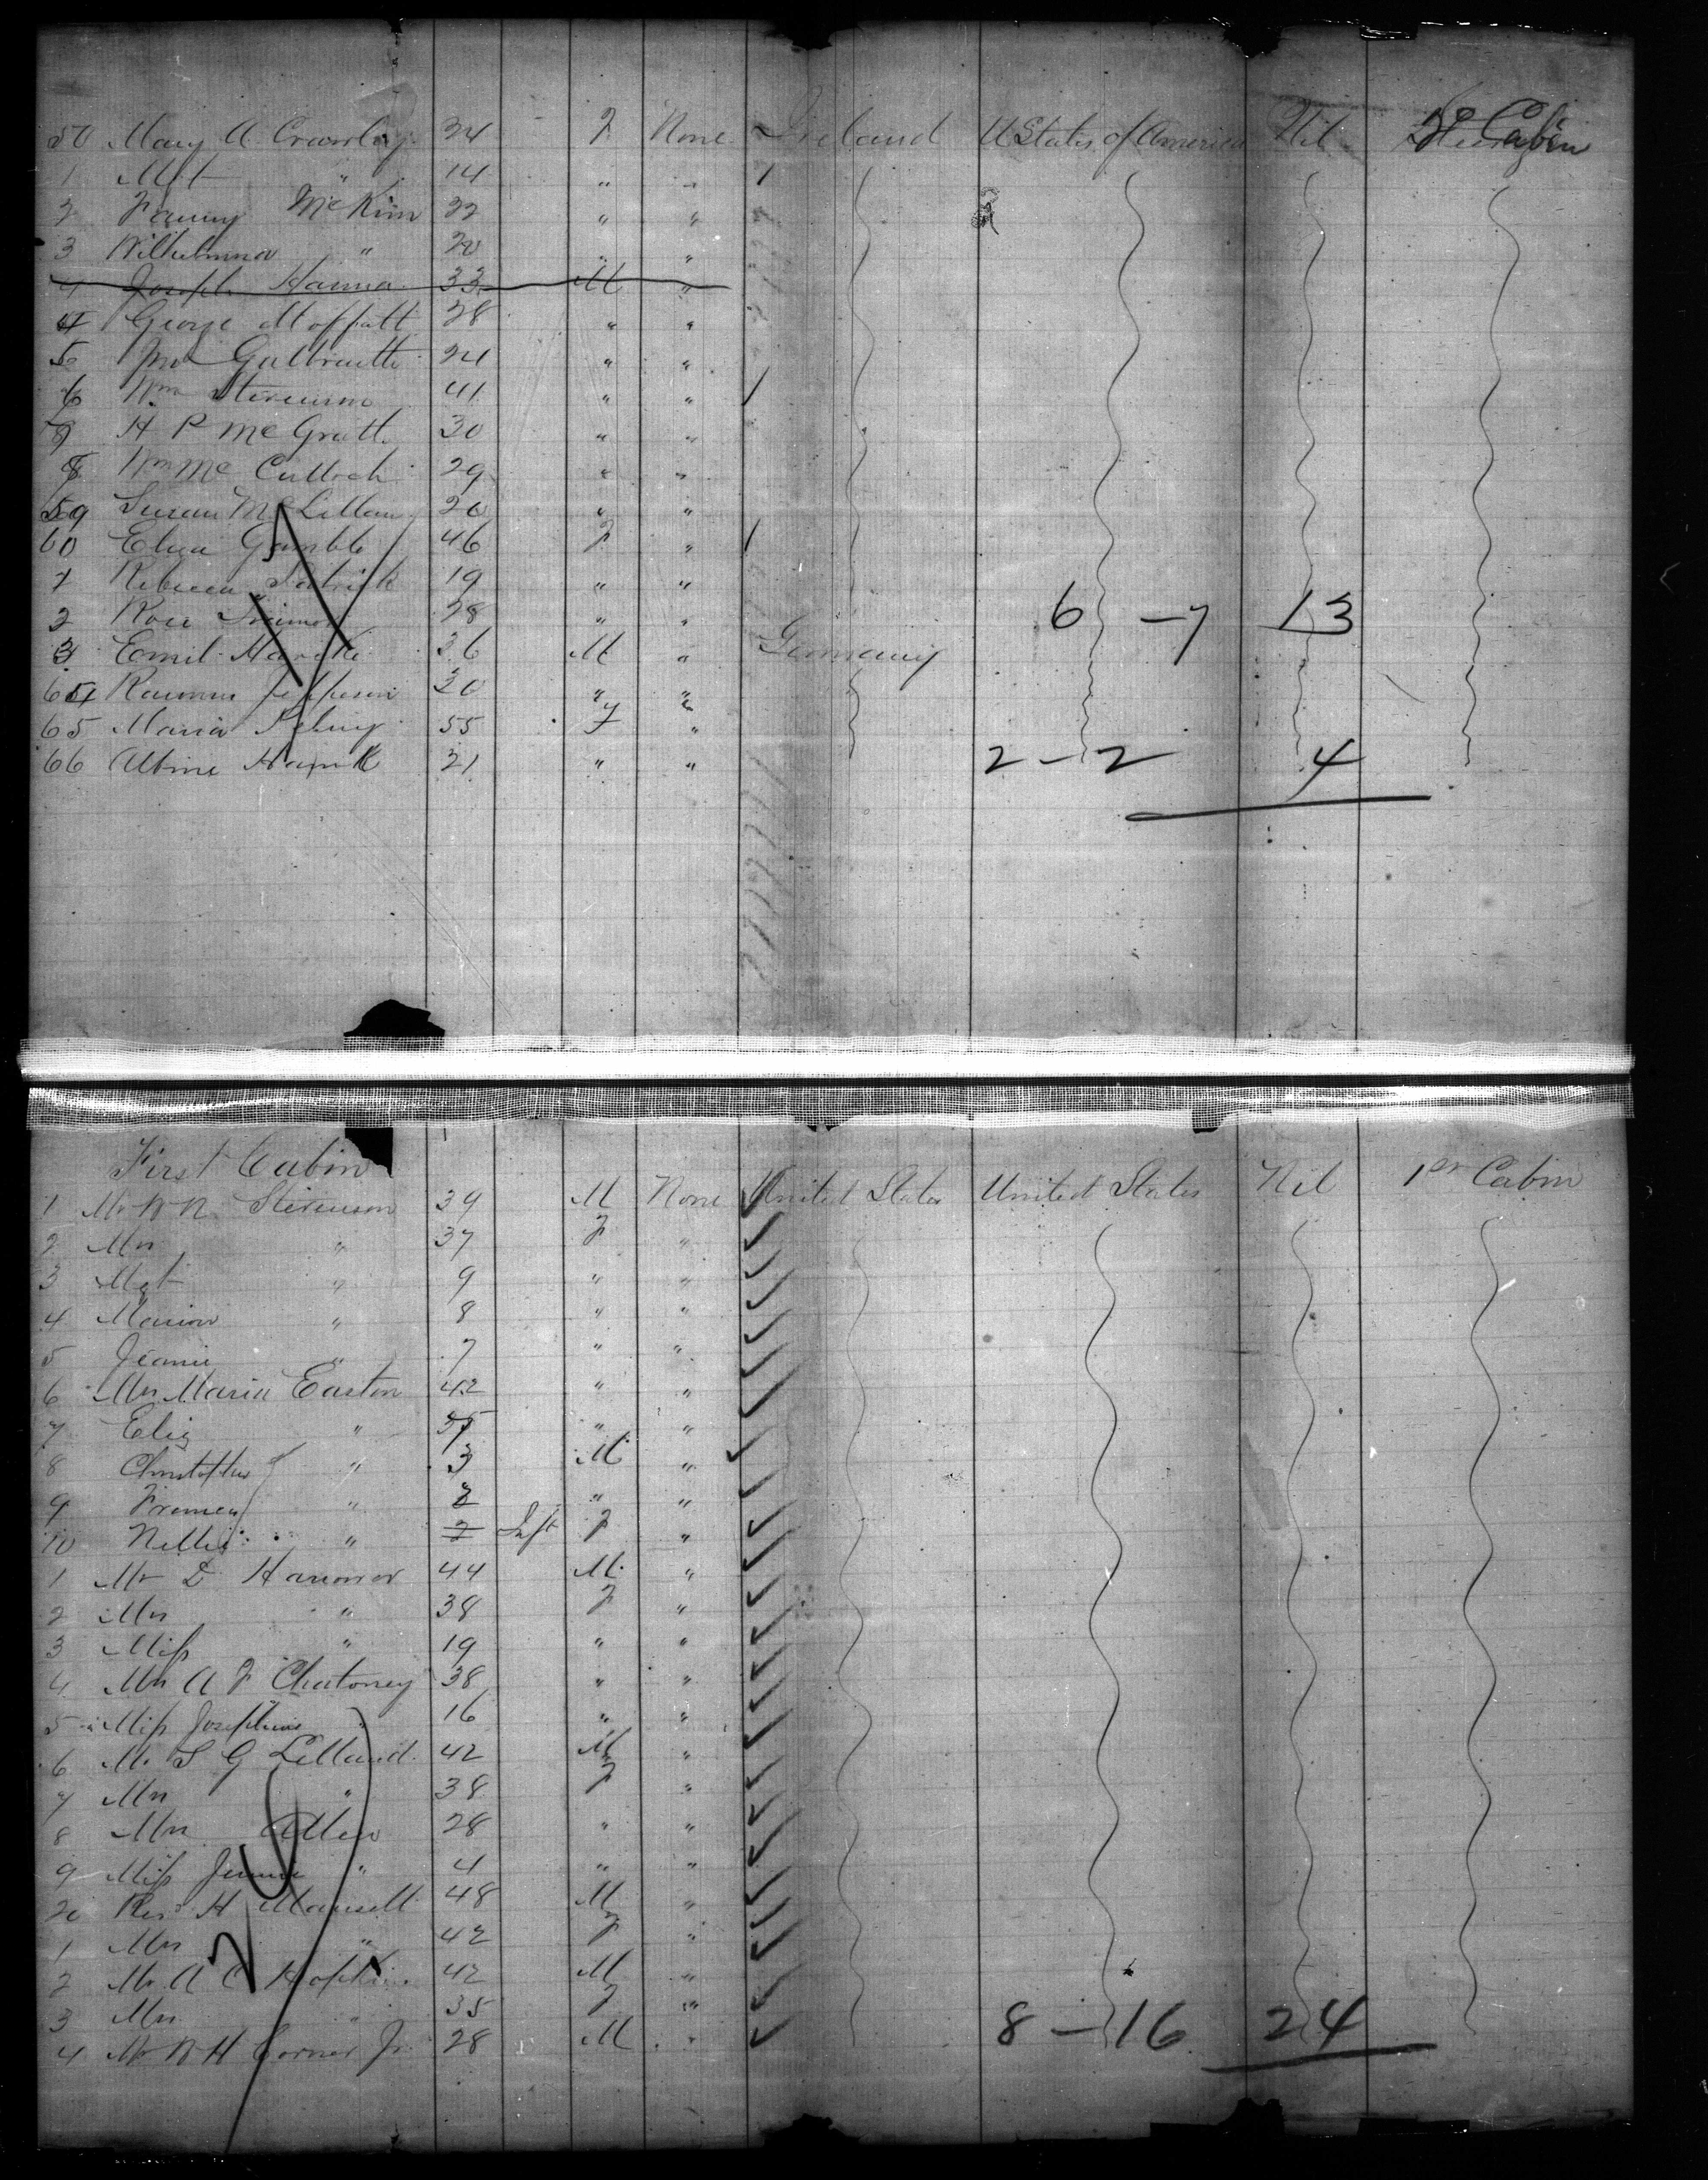 50 Mary A Crawley 34 F None Ireland U States of America Nil 2d Cabin
1 Mgt " 14 " "
2 Fanny McKim 32 " "
3 Wilhelmina " 20 " "
4 Joseph Hanna 33 M "
4 George Moffatt 28 " "
5 Jno Galbraith 24 " "
6 Wm Stevenson 41 " "
7 H P McGrath 30 " "
8 Wm McCulloch 29 " "
59 Susan McLellan 20 " "
60 Eliza Gamble 46 F "
1 Rebecca Patrick 19 " "
2 Rose 28 " " 6 - 7 13
3 Emil 36 M " Germany
64 Jeppesen 20 " "
65 Maria 55 F "
66 Albine 21 " " 2 - 2 4
First Cabin
1 Mr W R Stevenson 39 M None United States United States Nil 1st Cabin
2 Mrs " 37 F "
3 Mgt " 9 " "
4 Marion " 8 " "
5 Jeanie " 7 " "
6 Mrs Maria Easton 42 " "
7 Eliz " " "
8 Christopher " 3 M "
9 " 2 " "
10 Nellie " Inft F "
1 Mr D 44 M "
2 Mrs " 38 F "
3 Miss " 19 " "
4 Mrs A F Chatoney 38 " "
5 Miss Josephine " 16 " "
6 Mr S G Lelland 42 M "
7 Mrs " 38 F "
8 Mrs Allen 28 " "
9 Miss Jennie " 4 " "
20 Revd H Mansell 48 M "
1 Mrs " 42 F "
2 Mr A C Hopkins 42 M "
3 Mrs " 35 F " 8 - 16 24
4 Mr W H Corner Jr 28 M "